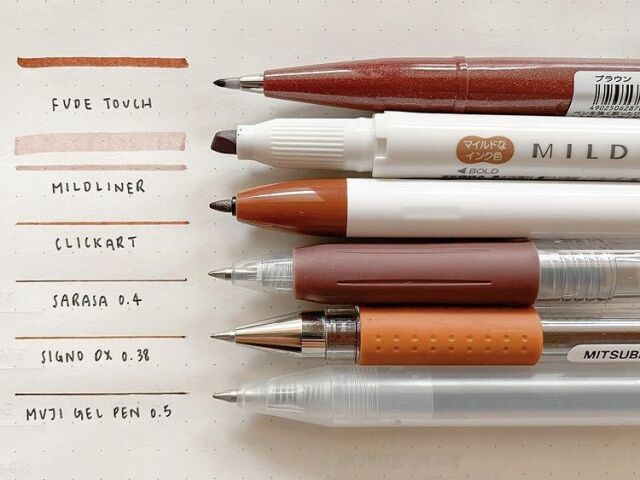 FUDE TOUCH
MILDLINER
CLICKART
SARASA 0.4
SIGNO DX 0.38
MUJI GEL PEN 0.5
ブラウン
マイルドな
インク色
MILD
◀BOLD
MITSUBI